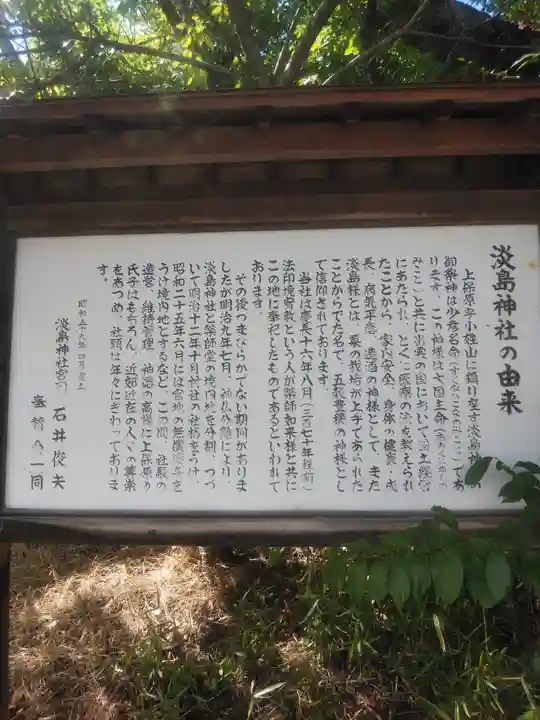 淡島神社の由来
上保原字小姓山に鎮り座す淡島神
御祭神は少彦名命（すくなひこなのみこと）であ
ります。この神様は大国主命
みこと）と共に出雲の国において国土経営
にあたられ、とくに医療の法を教えられ
たことから、家内安全、身体の健康、成
長、病気平癒、造酒の神様として、また
淡島様とは、粟の栽培が上手であられた
ことからでた名で、五穀豊穣の神様とし
て信仰されております。
当社は慶長十六年八月（三百七十年程前）
法印境寄教という人が薬師如来様と共に
この地に奉祀したものであるといわれて
おります。
その後つまびらかでない期間がありま
したが明治九年七月、神仏分離により、
淡島神社と薬師堂の境内地を分割、つづ
いて明治十二年十月村社の社格をうけ、
昭和二十五年六月には官地の無償譲与を
うけ境内地とするなど、この間、社殿の
造営、維持管理、神徳の高揚に上保原の
氏子はもちろん、近郊近在の人々の尊崇
をあつめ、社頭は年々にぎわっておりま
す。
昭和五十九年四月
淡島神社宮司 石井俊夫
一同